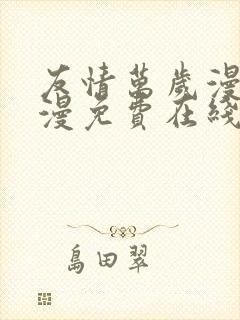 友情萬歲漫
漫免費在綫
島田翠